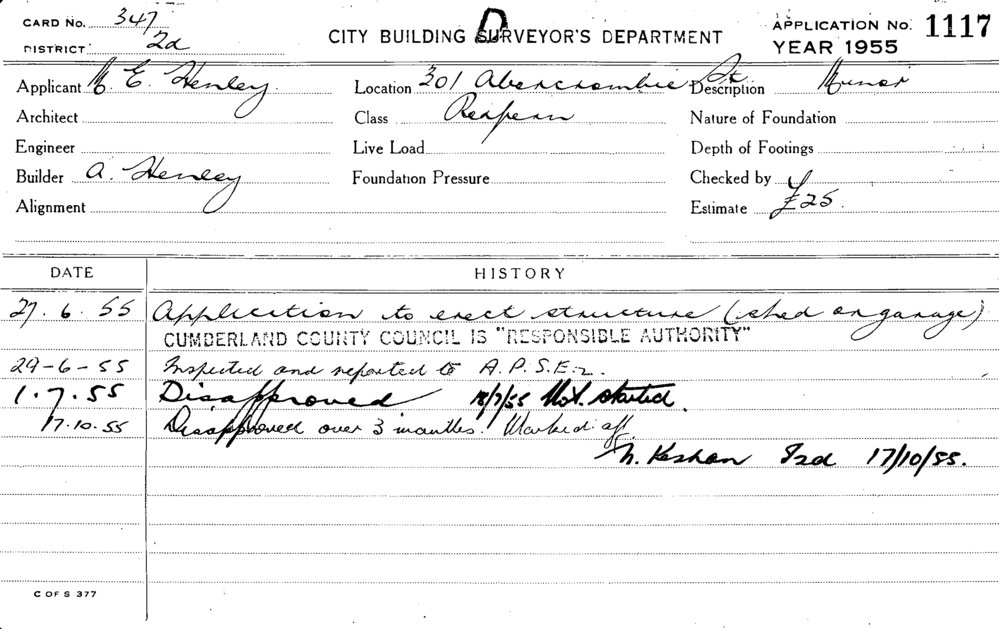 CARD No. 347
DISTRICT 2d
D
CITY BUILDING SURVEYOR'S DEPARTMENT
APPLICATION No. 1117
YEAR 1955
Applicant M. E. Henley. Location 301 Abercrombie St Description Minor
Architect Class Nature of Foundation
Engineer Live Load Depth of Footings
Builder A. Henley Foundation Pressure Checked by
Alignment Estimate £25.
DATE HISTORY
27. 6. 55 Application to erect structure (shed or garage)
CUMBERLAND COUNTY COUNCIL IS "RESPONSIBLE AUTHORITY"
29-6-55 Inspected and reported to A.P.S.E.
1.7.55 Disapproved 18/7/55 Not started.
17.10.55 Disapproved over 3 months. Marked off
17/10/55.
C OF S 377